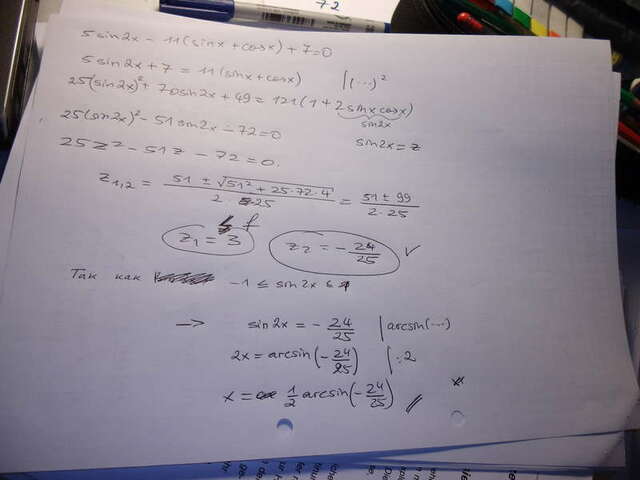 72
5 sin2x - 11(sinx + cosx) + 7 = 0
5 sin2x + 7 = 11(sinx + cosx) |(...)²
25(sin2x)² + 70sin2x + 49 = 121(1 + 2sinx cosx)
sin2x
25(sin2x)² - 51sin2x - 72 = 0
sin2x = z
25z² - 51z - 72 = 0.
z1,2 = (51 ± √(51² + 25·72·4))/(2·25) = (51 ± 99)/(2·25)
z1 = 3 z2 = -24/25 ✓
Так как -1 ≤ sin2x ≤ 1
→ sin2x = -24/25 | arcsin(...)
2x = arcsin(-24/25) | :2
x = 1/2 arcsin(-24/25)